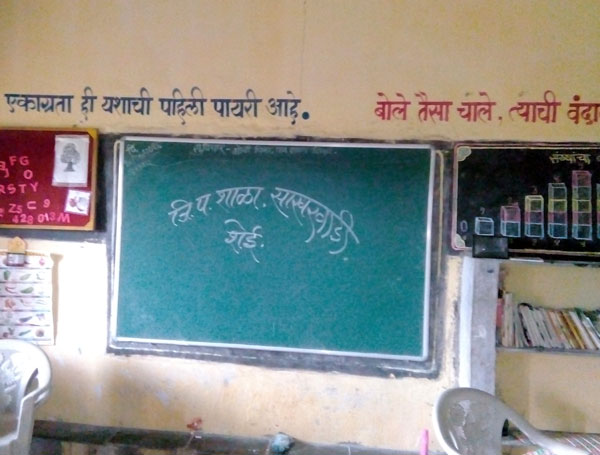 एकाग्रता ही यशाची पहिली पायरी आहे.
बोले तैसा चाले, त्याची वंदा
FG
O
RSTY
Z5 C 9
428 013M
जि. प. शाळा. साखरवाडी
शेई.
संख्याचा
0